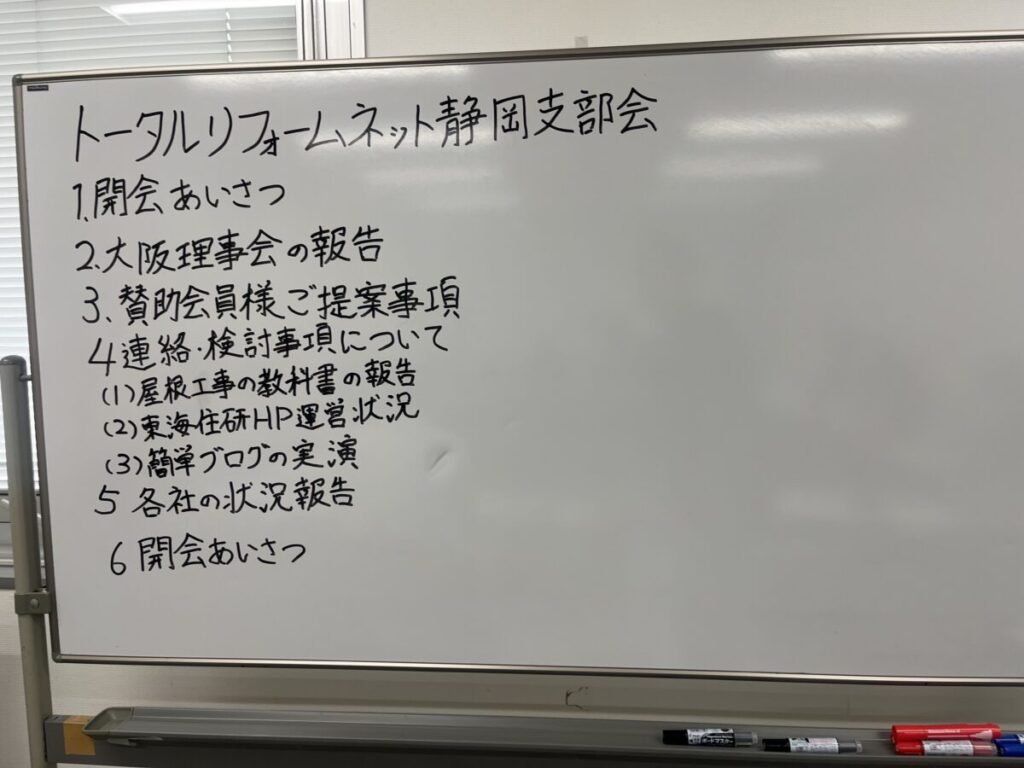 トータルリフォームネット静岡支部会
1.開会あいさつ
2.大阪理事会の報告
3.賛助会員様ご提案事項
4連絡・検討事項について
(1)屋根工事の教科書の報告
(2)東海住研HP運営状況
(3)簡単ブログの実演
5 各社の状況報告
6 開会あいさつ
ボードマスター